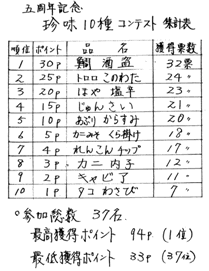 五周年記念
珍味10種 コンテスト 集計表
順位 ポイント 品名 獲得票数
1 30p 鯛酒盗 32票
2 25p トロロこのわた 24〃
3 20p はや塩辛 23〃
4 15p じゅんさい 21〃
5 10p あぶりからすみ 20〃
6 5p かーみそくらげ 18〃
7 4p れんこんチップ 17〃
8 3p カニ内子 12〃
9 2p キャビア 11〃
10 1p タコわさび 7〃
○参加総数 37名
最高獲得ポイント 94p (1位)
最低獲得ポイント 33p (37位)